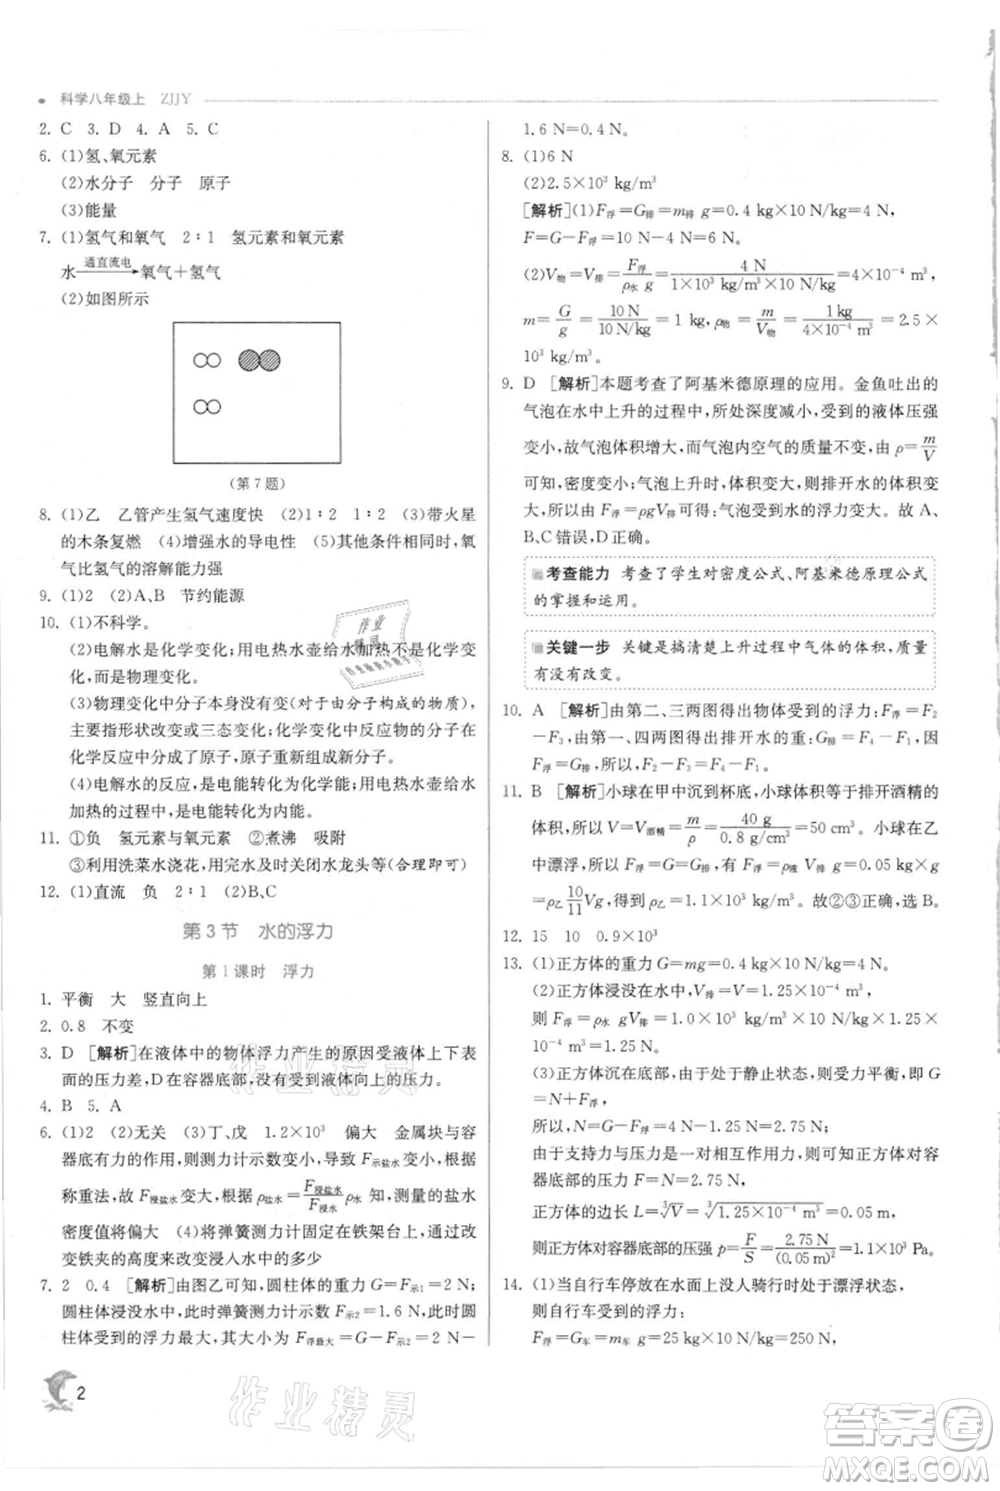 科学八年级上 ZJJY
2. C 3. D 4. A 5. C
6. (1)氢、氧元素
(2)水分子 分子 原子
(3)能量
7. (1)氢气和氧气 2∶1 氢元素和氧元素
水 通直流电→ 氧气＋氢气
(2)如图所示
(第 7 题)
8. (1)乙 乙管产生氢气速度快 (2)1∶2 1∶2 (3)带火星
的木条复燃 (4)增强水的导电性 (5)其他条件相同时,氧
气比氢气的溶解能力强
9. (1)2 (2)A、B 节约能源
10. (1)不科学。
(2)电解水是化学变化;用电热水壶给水加热是物理变
化,而不是化学变化。
(3)物理变化中分子本身没有变(对于由分子构成的物质),
主要指形状改变或三态变化;化学变化中反应物的分子
在化学反应中分成了原子,原子重新组合成新的分子。
(4)电解水的反应,是电能转化为化学能;电热水壶给水
加热的过程中,是电能转化为内能。
11. ①负 氢元素与氧元素 ②煮沸 吸附
③利用洗菜水浇花,用完水及时关闭水龙头等(合理即可)
12. (1)直流 负 2∶1 (2)B、C
第 3 节 水的浮力
第 1 课时 浮力
1. 平衡 大 竖直向上
2. 0.8 不变
3. D [解析]在液体中的物体浮力产生的原因受液体上下表
面的压力差,D 在容器底部,没有受到液体向上的压力。
4. B 5. A
6. (1)2 (2)无关 (3)丁、戊 1.2×10³ 偏大 金属块与容
器底有力的作用,则测力计示数变小,导致 F示盐水变小,根据
称重法,可知 F浸盐水变大,根据 ρ盐水＝F浸盐水/F浸水 知,测量的盐水
密度值将偏大 (4)将弹簧测力计固定在铁架台上,通过
改变铁夹的高度来改变浸入水中的多少
7. 2 0.4 [解析]由图乙可知,圆柱体的重力 G＝F示1＝2 N;
圆柱体浸没水中,此时弹簧测力计示数 F示2＝1.6 N,此时圆
柱体受到的浮力最大,其值大小为 F浮最大＝G－F示2＝2 N－
2
1.6 N＝0.4 N。
8. (1)6 N
(2)2.5×10³ kg/m³
[解析](1)F浮＝G排＝m排 g＝0.4 kg×10 N/kg＝4 N,
F＝G－F浮＝10 N－4 N＝6 N。
(2)V物＝V排＝F浮/ρ水 g＝4 N/1×10³ kg/m³×10 N/kg＝4×10⁻⁴ m³,
m＝G/g＝10 N/10 N/kg＝1 kg,ρ物＝m/V物＝1 kg/4×10⁻⁴ m³＝2.5×
10³ kg/m³。
9. D [解析]本题考查了阿基米德原理的应用。金鱼吐出的
气泡在水中上升的过程中,所处深度减小,受到的液体压强
变小,故气泡体积增大,而气泡内空气的质量不变,由 ρ＝m/V
可知,气泡密度变小;气泡上升时,体积变大,则排开水的体积变
大,所以由 F浮＝ρgV排可得:气泡受到水的浮力变大。故 A、
B、C 错误,D 正确。
考查能力 考查了学生对密度公式、阿基米德原理公式
的掌握和运用。
关键一步 关键是搞清楚上升过程中气体的体积,质量
有没有改变。
10. A [解析]由第二、三两图得出物体受到的浮力:F浮＝F₂
－F₃,由第一、四两图得出排开水的重:G排＝F₄－F₁,因
F浮＝G排,所以 F₄－F₁＝F₂－F₃。
11. B [解析]小球在甲中沉到杯底,小球体积等于排开酒精的
体积,所以 V＝V酒精＝m/ρ＝40 g/0.8 g/cm³＝50 cm³。小球在乙
中漂浮,所以 F浮＝G。因为 F浮＝ρ液 V排 g＝0.05 kg×g
＝ρ乙 10/11 Vg,所以 ρ乙＝1.1×10³ kg/m³。故②③正确,选 B。
12. 15 10 0.9×10³
13. (1)正方体的重力 G＝mg＝0.4 kg×10 N/kg＝4 N。
(2)正方体浸没在水中,V排＝V＝1.25×10⁻⁴ m³,
则 F浮＝ρ水 gV排＝1.0×10³ kg/m³×10 N/kg×1.25×
10⁻⁴ m³＝1.25 N。
(3)正方体沉在底部,由于处于静止状态,受力平衡,即 G
＝N＋F浮,
所以,N＝G－F浮＝4 N－1.25 N＝2.75 N,
由于支持力与压力是一对相互作用力,则正方体对容
器底部的压力 F＝N＝2.75 N,
正方体的边长 L＝∛V＝∛1.25×10⁻⁴ m³＝0.05 m,
则正方体对容器底部的压强 p＝F/S＝2.75 N/(0.05 m)²＝1 100 Pa。
14. (1)当自行车停放在水面上没人骑行时处于漂浮状态,
则自行车受到的浮力:
F浮＝G车＝m车 g＝25 kg×10 N/kg＝250 N,
作业精灵
作业精灵
作业精灵
答案圈
MXQE.COM